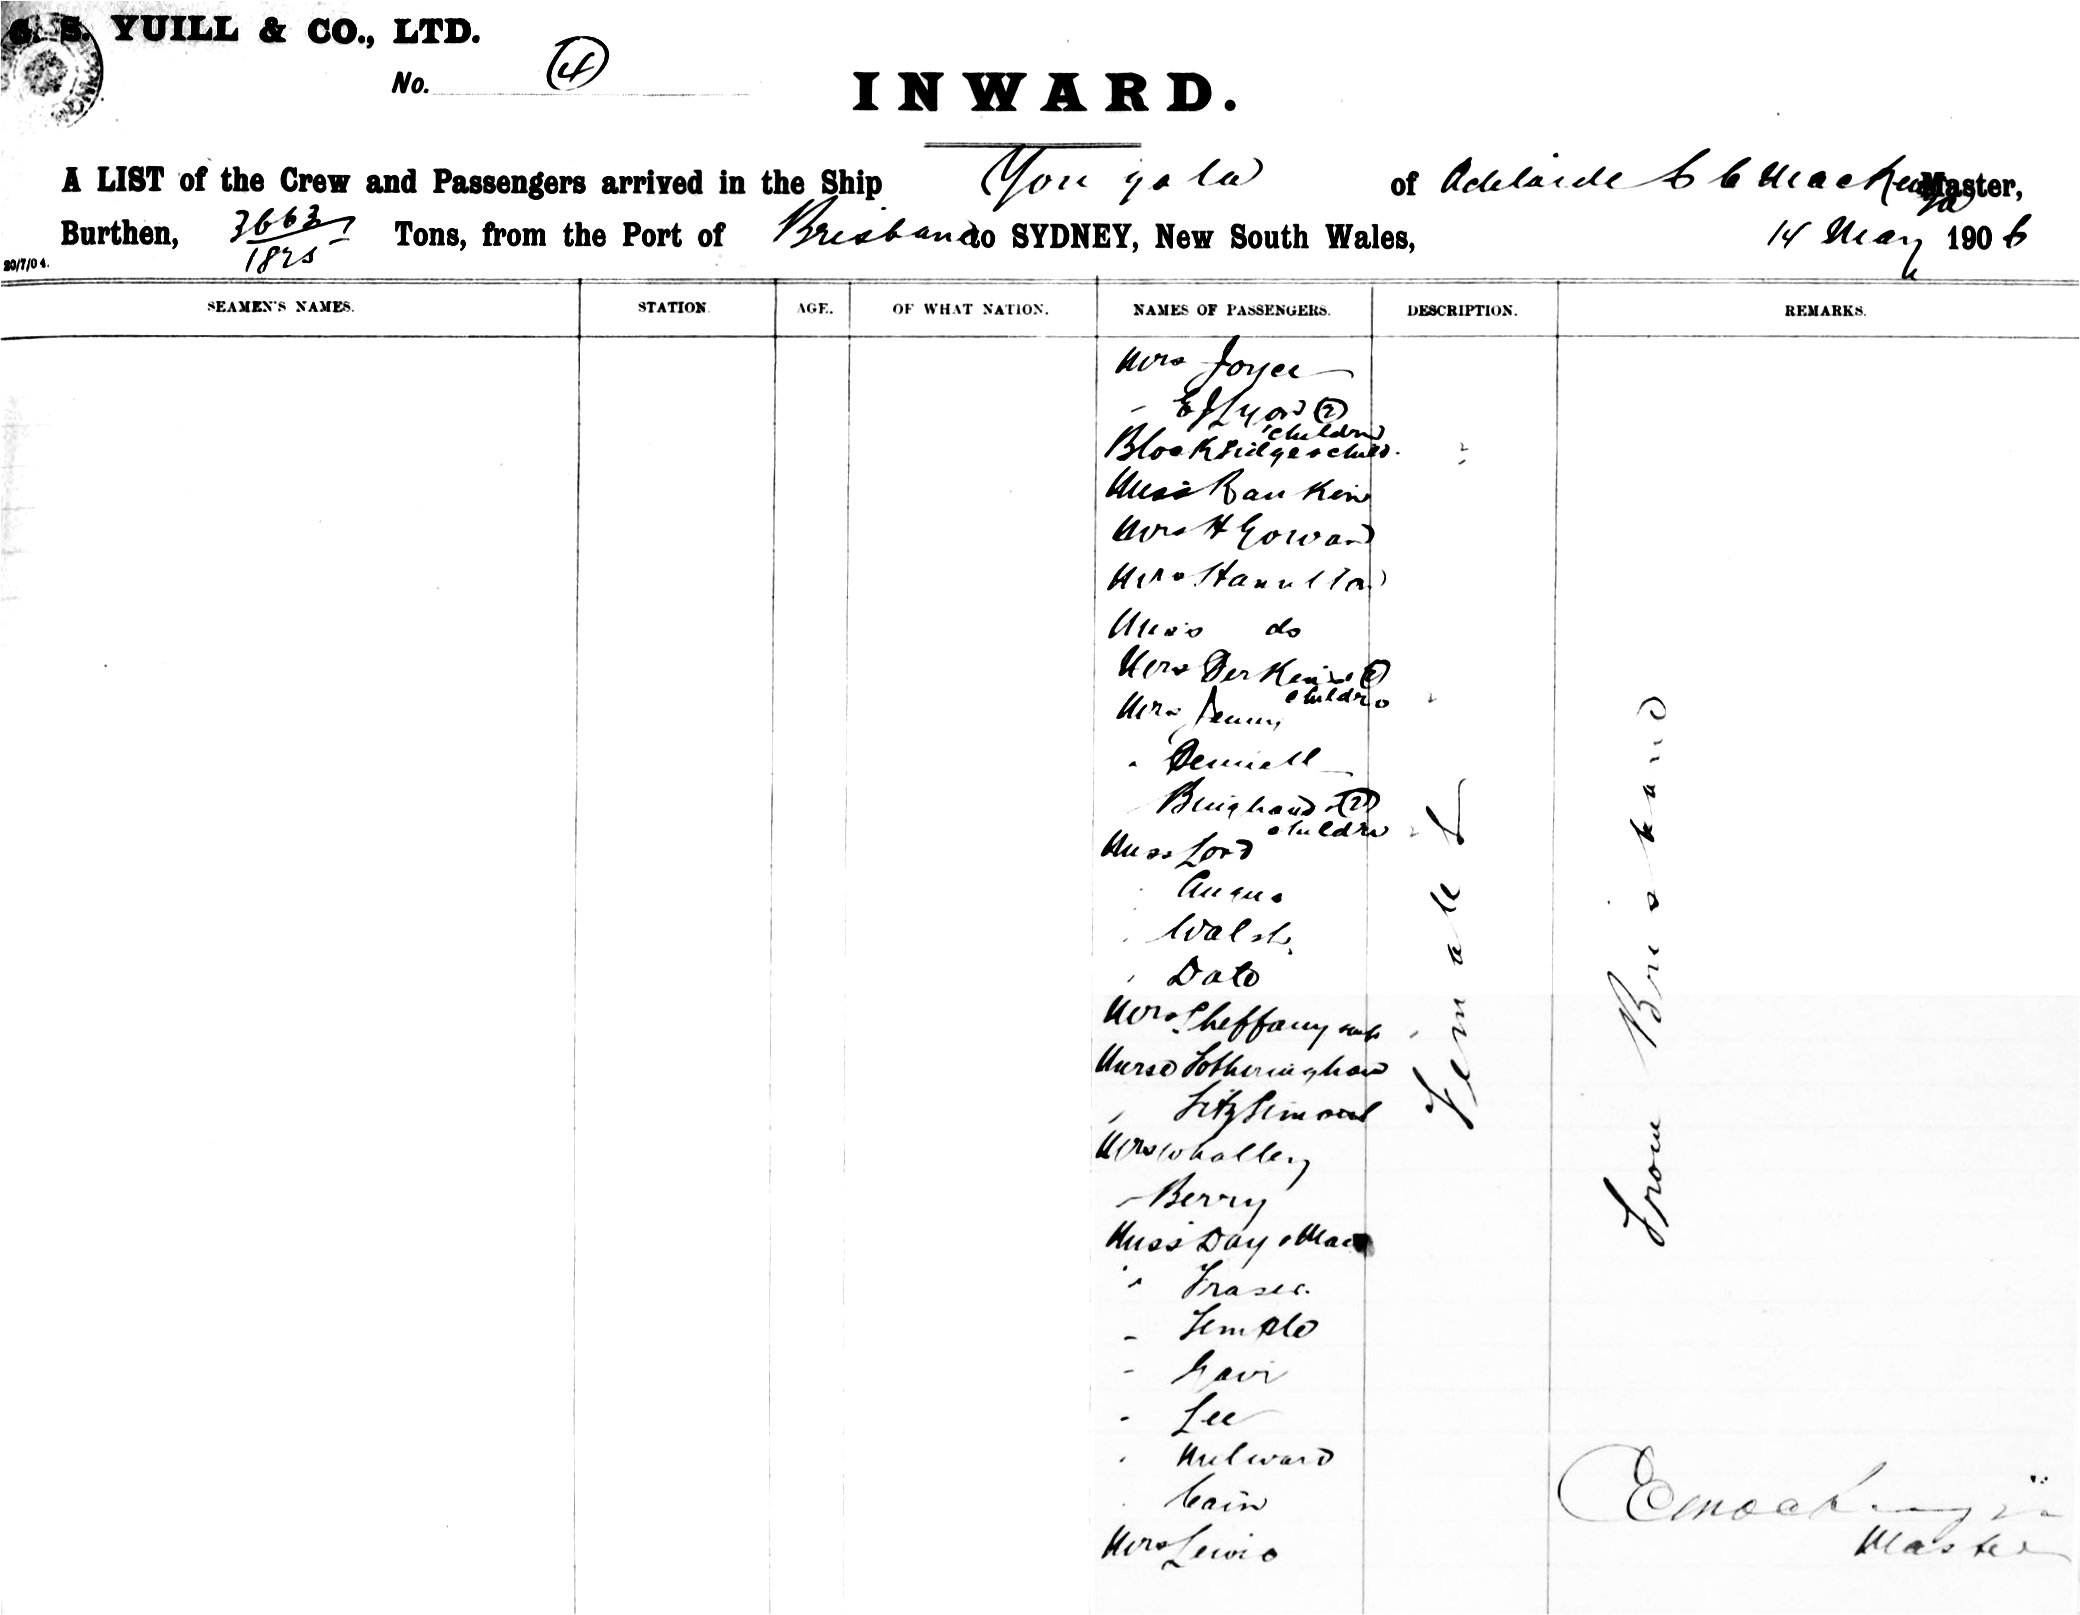 G. S. YUILL & CO., LTD.
No. 4
INWARD.
A LIST of the Crew and Passengers arrived in the Ship Yongala of Adelaide C C Mackenzie Master,
Burthen, 3663/1825 Tons, from the Port of Brisbane to SYDNEY, New South Wales, 14 May 1906
20/7/04.
SEAMEN'S NAMES. STATION. AGE. OF WHAT NATION. NAMES OF PASSENGERS. DESCRIPTION. REMARKS.
Mrs Joyce
- E J Lyon (2)
children
Blockridge & child.
Miss Rankin
Mrs H Gowan
Mrs Hamilton
Miss do
Mrs Perkins (2)
children
Mrs Jenny
" Bennett
Bingham (2)
children
Miss Lord
" Angus
" Walsh
" Dato
Mrs Sheffany
Nurse Fotheringham
" FitzSimons
Mrs Whalley
- Berry
Miss Day
" Fraser
- Temple
- Gair
- Lee
" Milward
" Cain
Mrs Lewis
Female
From Brisbane
Master